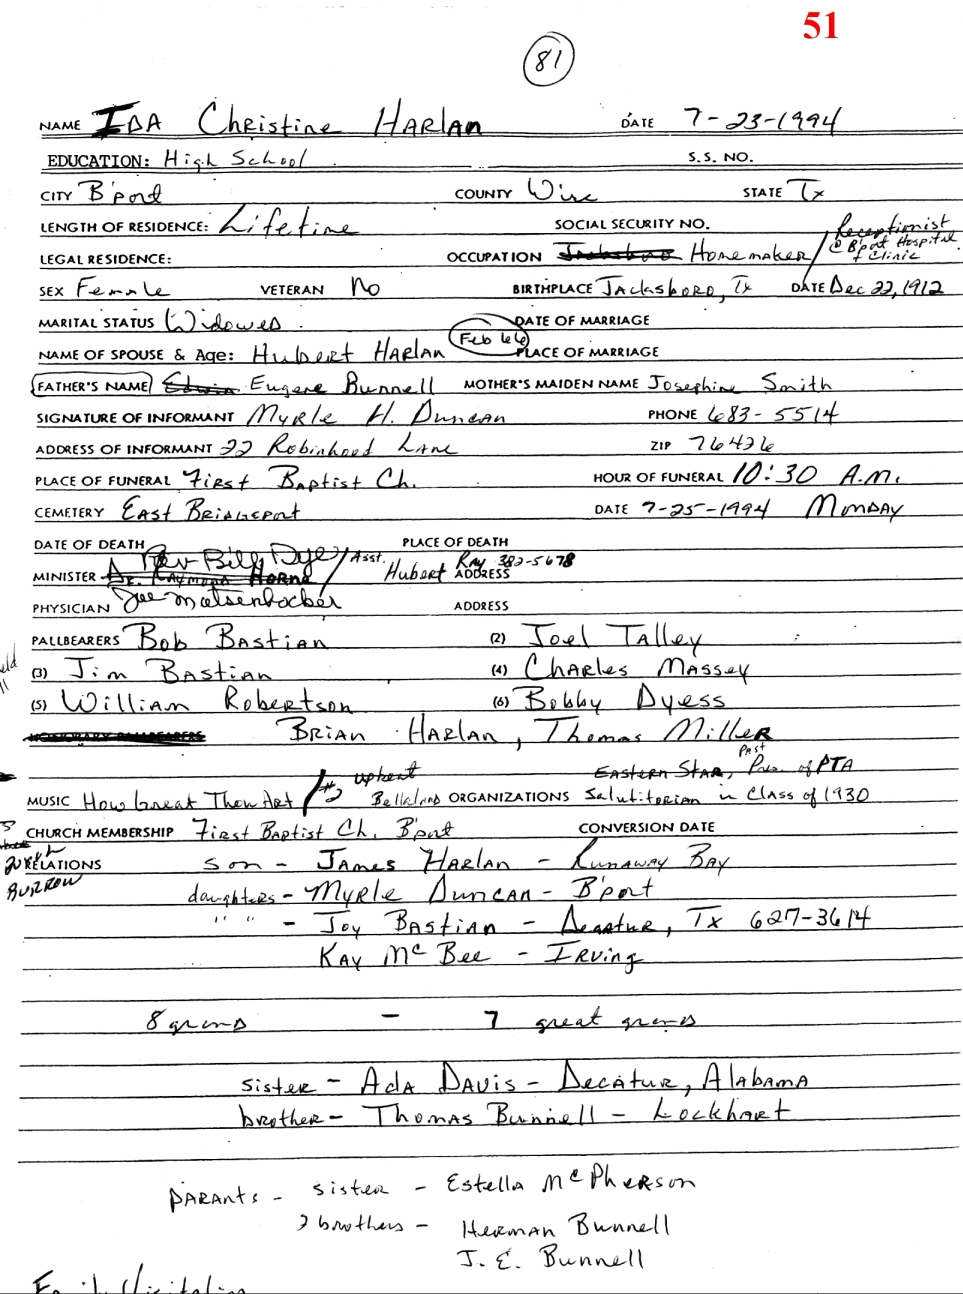 51
81
NAME IDA Christine HARLAN DATE 7-23-1994
EDUCATION: High School S.S. NO.
CITY B'port COUNTY Wise STATE Tx
LENGTH OF RESIDENCE: Lifetime SOCIAL SECURITY NO.
LEGAL RESIDENCE: OCCUPATION Jacksboro Homemaker / Receptionist @ B'port Hospital & Clinic
SEX Female VETERAN No BIRTHPLACE Jacksboro, Tx DATE Dec 22, 1912
MARITAL STATUS Widowed DATE OF MARRIAGE
NAME OF SPOUSE & Age: Hubert HARLAN Feb 66 PLACE OF MARRIAGE
FATHER'S NAME Edwin Eugene Bunnell MOTHER'S MAIDEN NAME Josephine Smith
SIGNATURE OF INFORMANT Myrle H. Duncan PHONE 683-5514
ADDRESS OF INFORMANT 22 Robinhood Lane ZIP 76426
PLACE OF FUNERAL First Baptist Ch. HOUR OF FUNERAL 10:30 A.M.
CEMETERY East Bridgeport DATE 7-25-1994 Monday
DATE OF DEATH PLACE OF DEATH
Rev Billy Dye / Asst. Hubert Ray 382-5678
MINISTER Dr. Raymond Horne ADDRESS
PHYSICIAN Joe ADDRESS
PALLBEARERS Bob Bastian (2) Joel Talley
(3) Jim Bastian (4) Charles Massey
(5) William Robertson (6) Bobby Dyess
HONORARY PALLBEARERS Brian Harlan, Thomas Miller
upbeat Eastern Star, Past Pres. of PTA
MUSIC How Great Thou Art / #2 ORGANIZATIONS Salutitorian in Class of 1930
CHURCH MEMBERSHIP First Baptist Ch. B'port CONVERSION DATE
RELATIONS son - James Harlan - Runaway Bay
Burrow
daughters - Myrle Duncan - B'port
" " - Joy Bastian - Decatur, Tx 627-3614
Kay McBee - Irving
8 grands - 7 great grands
sister - Ada Davis - Decatur, Alabama
brother - Thomas Bunnell - Lockhart
parants - sister - Estella McPherson
2 brothers - Herman Bunnell
J. E. Bunnell
Family Visitation